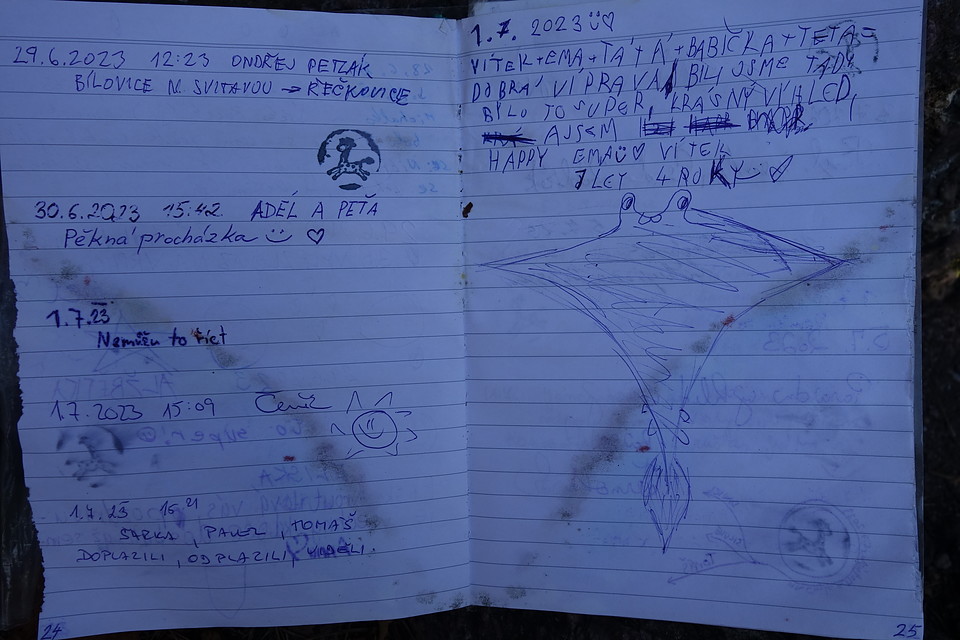 29.6.2023 12:23 ONDŘEJ PETLÁK
BÍLOVICE N. SVITAVOU → ŘEČKOVICE
30.6.2023 15:42 ADÉL A PEŤA
Pěkná procházka ☺ ♡
1.7.23
Nemůžu to říct
1.7.2023 15:09
1.7.23 15 21
ŠÁRKA, PAVEL, TOMÁŠ
DOPLAZILI, ODPLAZILI,
24
1.7. 2023 ♡
VÍTEK+EMA+TÁ+A+BABIČKA+TETA=
DOBRÁ VÍPRAVA! BILI JSME TADY
BÝLO TO SUPER, KRÁSNÝ VÍHLED,
A JSEM
HAPPY EMA ♡ VÍTEK
7 LET 4 ROKY ♡
25